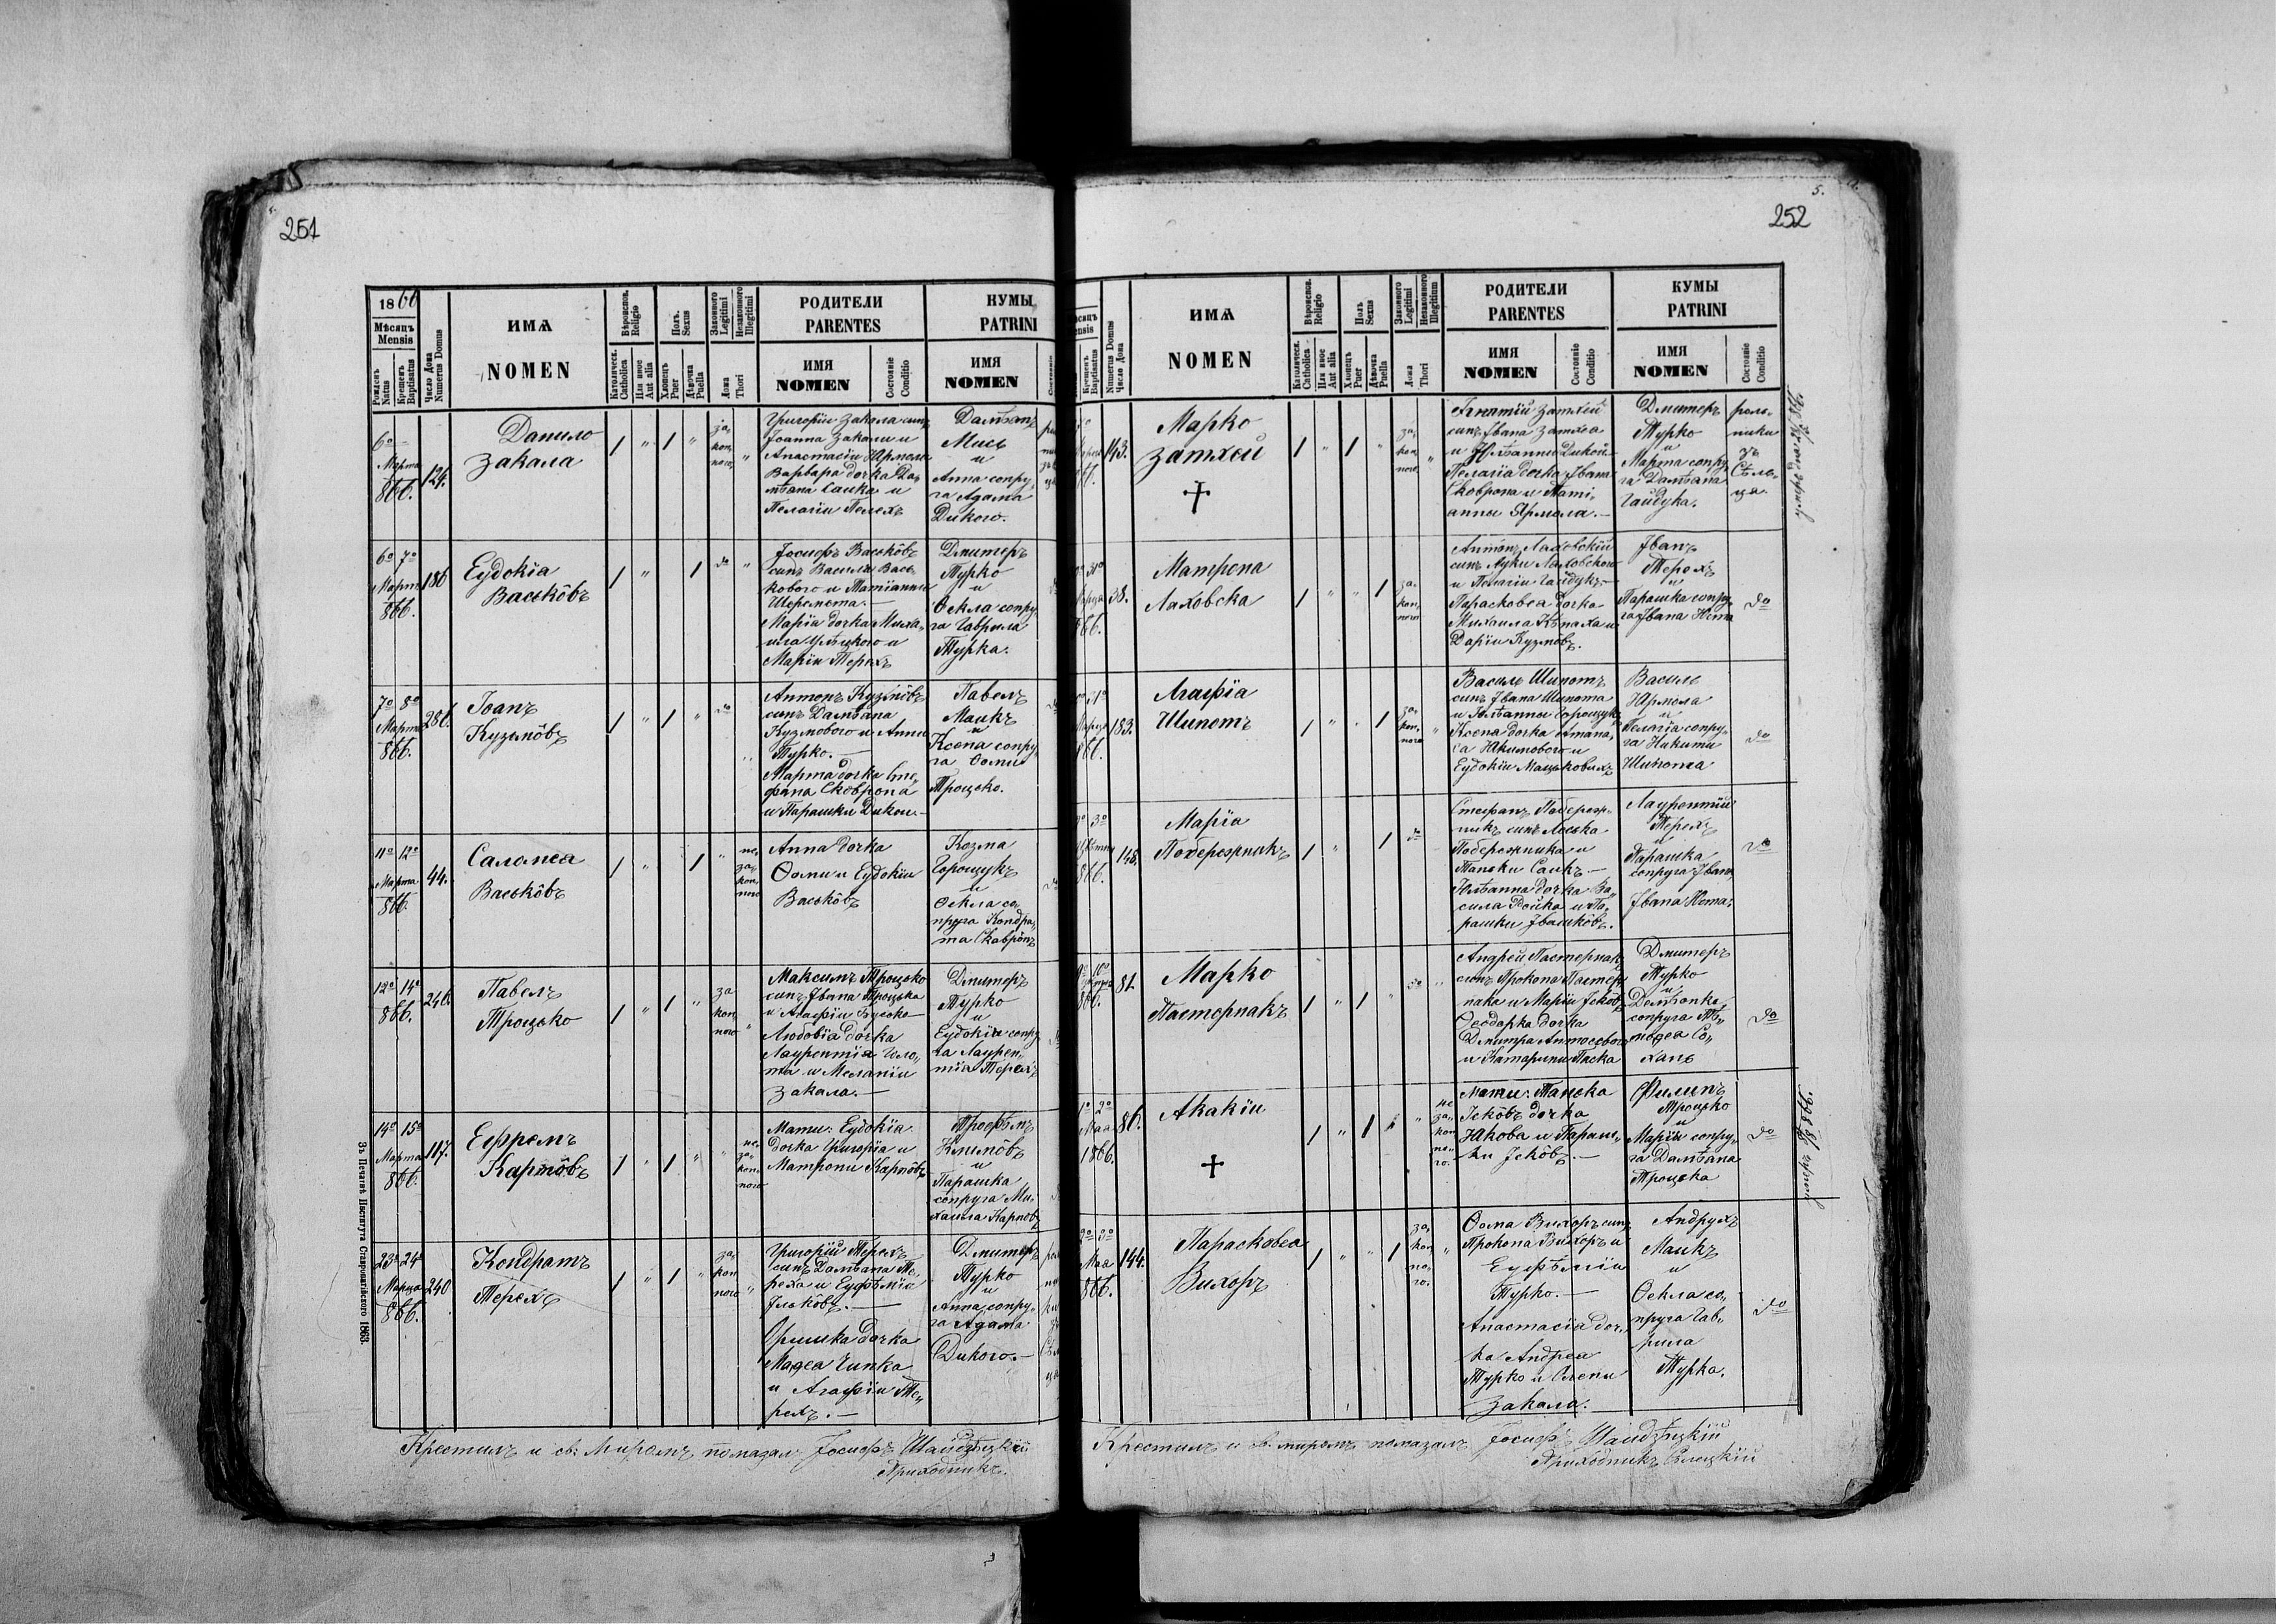 251
1866
Мѣсяцъ
Mensis
Рожденъ
Natus
Крещенъ
Baptisatus
Число Дома
Numerus Domus
ИМЯ
NOMEN
Вѣроиспов.
Religio
Католическ.
Catholica
Или иное
Aut alia
Полъ.
Sexus
Хлопецъ
Puer
Дѣвочка
Puella
Законного
Legitimi
Незаконного
Illegitimi
Ложа
Thori
РОДИТЕЛИ
PARENTES
ИМЯ
NOMEN
Состояніе
Conditio
КУМЫ
PATRINI
ИМЯ
NOMEN
6º
Марта
866.
124.
Данило
Закала
за,
кон,
ного
Григорій Закала синъ
Іоанна Закали и
Анастасіи Ярмола
Варвара дочка Да,
міана Саика и
Пелагіи Пелехъ
Даміанъ
Мись
и
Анна супру,
га Адама
Дикого.
6º 7º
Марта
866.
186
Еудокіа
Васькôвъ
do
Іосифъ Васькôвъ
синъ Василя Вась
кового и Татіанни
Шеремета.
Маріи дочка Миха,
ила и
Маріи Терехъ
Дмитеръ
Турко
и
Ѳекла сопру
га Гаврила
Турка.
7º 8º
Марта
866.
286.
Іоанъ
Кузьмôвъ
do
Антонъ Кузмôвъ
синъ Даміана
Кузмового и Анни
Турко.
Марта дочка Сте,
фана Сковрона
и Парашки Дикои.
Павелъ
Маикъ
и
Ксена сопру
га Ѳоми
Троцько.
11º 12º
Марта
866.
44.
Саломеа
Васькôвъ
не,
за,
кон,
ного
Анна дочка
Ѳоми и Еудокіи
Васькôвъ
Козма
Горощукъ
и
Ѳекла со,
пруга Кондра,
та Скаврôнъ
12º 14º
866.
246.
Павелъ
Троцько
за
кон,
ного
Максимъ Троцько
синъ Івана Троцька
и Агафіи
Любовіа дочка
Лаурентіа
та и Меланіи
Закала.
Дмитеръ
Турко
и
Еудокіи сопру
га Лаурен,
тіа Терехъ
14º 15º
Марта
866.
117.
Ефремъ
Карпôвъ
не,
за,
кон,
ного
Мати: Еудокіа
дочка Григоріа и
Матрони Карпôвъ
Трофѣмъ
Климôвъ
и
Парашка
сопруга Ми,
хаила Карповъ
23º 24º
Марца
866.
240
Кондратъ
Терехъ
за,
кон
ного
Григорій Терехъ
синъ Даміана Те,
реха и Еуфѣміа
Ільôвъ.
Оришка дочка
Мадеа Чипка
и Агафіи Те,
рехъ.
Дмитеръ
Турко
и
Анна сопру,
га Адама
Дикого.
Крестилъ и св: Миромъ помазалъ Іосифъ Шандѣцкій
Приходникъ.
Зъ Печатнѣ Института Ставропигійского 1863.
5.
252
Мѣсяцъ
Mensis
Крещенъ
Baptisatus
Numerus Domus
Число Дома
ИМЯ
NOMEN
Вѣроиспов.
Religio
Католическ.
Catholica
Или иное
Aut alia
Полъ
Sexus
Хлопецъ
Puer
Дѣвочка
Puella
Законного
Legitimi
Незаконного
Illegitimum
Ложа
Thori
РОДИТЕЛИ
PARENTES
ИМЯ
NOMEN
Состояніе
Conditio
КУМЫ
PATRINI
ИМЯ
NOMEN
Состояніе
Conditio
143.
Марко
Затхей
за,
кон,
ного
Ігнатій Затхей
синъ Івана Затхеа
и Юліанни Дикой
Пелагіа дочка Івана
Сковрона и Таті,
анны Ярмола.
Дмитеръ
Турко
и
Марта сопру,
га Даміана
Гайдука.
роль,
ники
зъ
Сѣль,
ца.
31º
Марца
866.
38.
Матрона
Лаховска
за,
кон,
ного
Антонъ Лаховскій
синъ Луки Лаховского
и Пелагіи Гайдукъ.
Парасковеа дочка
Михаила Кѣнаха и
Даріи Кузмôвъ.
Іванъ
Терехъ
и
Парашка сопру,
га Івана Нета
do
31º
Марца
866.
183.
Агафіа
Шипотъ
за,
кон,
ного
Василь Шипотъ
синъ Івана Шипота
и Юліанни Горощукъ
Ксена дочка Атана,
са Якимового и
Еудокіи Мацьковихъ
Василь
Ярмола
и
Пелагіа сопру,
га Никити
Шипота
do
3º
866.
148.
Маріа
Побережникъ
do
Стефанъ Побереж,
никъ синъ Леська
Побережника и
Таньки Саикъ
Юліанна дочка Ва,
силя и Па,
рашки Івашкôвъ.
Лаурентій
Терехъ
и
Парашка
сопруга Іван
Івана Нета,
do
9º 10º
866.
81
Марко
Пастернакъ
do
Андрей Пастернакъ
синъ Прокопа Пастер
нака и Маріи Іськôвъ
Ѳеодорка дочка
Дмитра
и Катерини Паска
Дмитеръ
Турко
и
Деміанка
сопруга Ть,
модеа Со,
хань
do
1º 2º
Маа
1866.
86.
Акакіи
не
за,
кон
но,
го.
Мати: Танька
Іськôвъ дочка
Якова и Параш,
ки Іськôвъ.
Филипъ
Троцько
и
Маріи сопру,
га Даміана
Троцька
do
2º 3º
Маа
866.
144.
Парасковеа
Вихоръ
за,
кон,
но,
го.
Ѳома Вихоръ синъ
Прокопа Вихоръ и
Еуфѣміи
Турко.
Анастасіа доч,
ка Андреа
Турко и Олени
Закала.
Андрухъ
Маикъ
и
Ѳекла со,
пруга Гав,
рила
Турка,
do
Крестилъ и св. миромъ помазалъ Іосифъ Шандѣцкій
Приходникъ Сѣлецкій